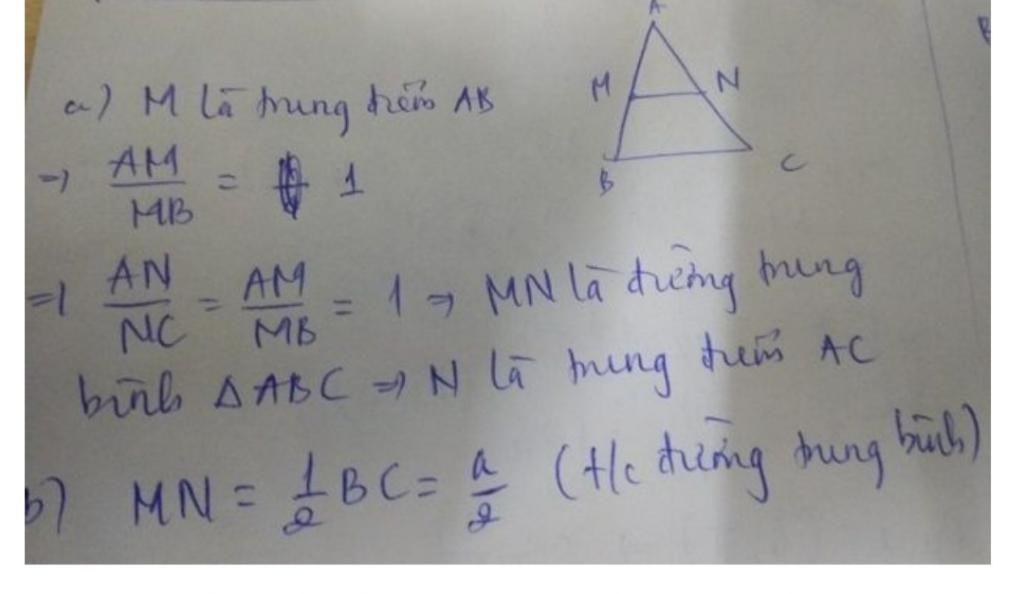 A
M
N
B
C
a) M là trung điểm AB
=> AM/MB = 1
=> AN/NC = AM/MB = 1 => MN là đường trung
bình Δ ABC => N là trung điểm AC
b) MN = 1/2 BC = a/2 (t/c đường trung bình)